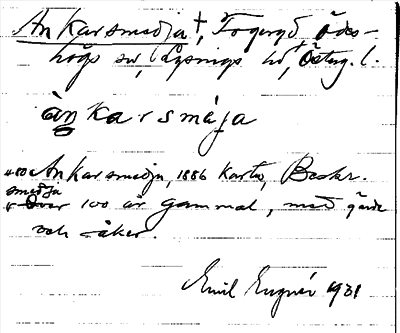 Ankarsmedja †, Fogeryd, Ödes-
högs sn, Lysings hd, Österg. l.
àŋkarsmėja
Ankarsmedja, 1886 karta, Beskr.
smedja
Över 100 år gammal, med gärde
och åker.
Emil 1931